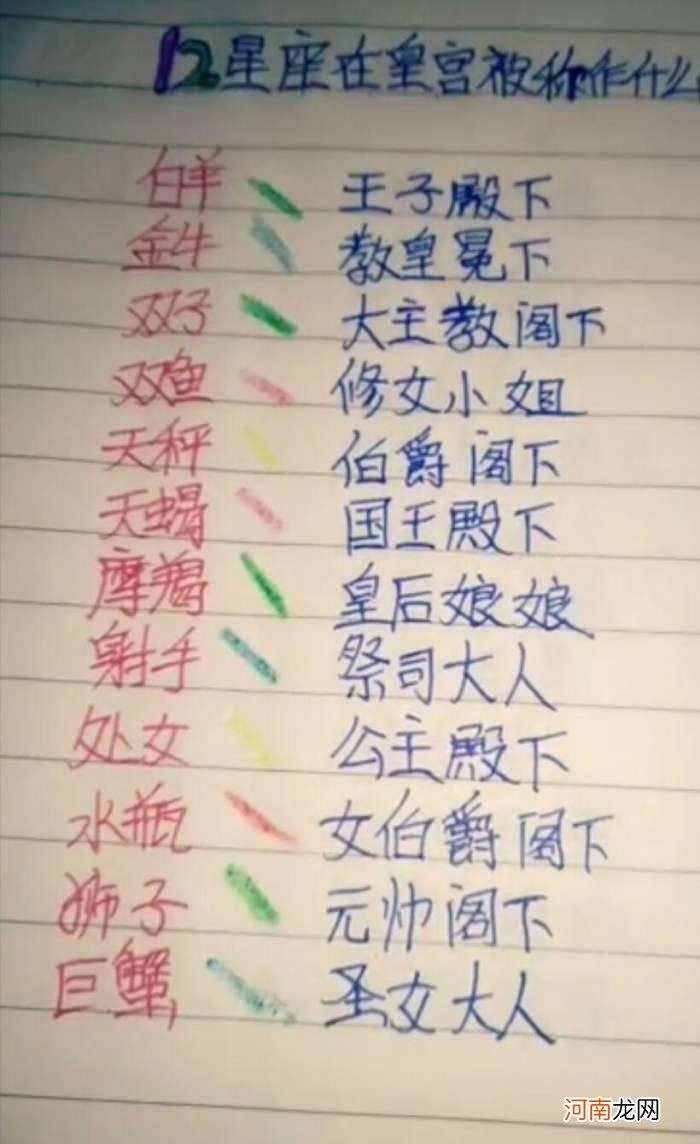 12星座在皇宫被称作什么
白羊 王子殿下
金牛 教皇冕下
双子 大主教阁下
双鱼 修女小姐
天秤 伯爵阁下
天蝎 国王殿下
摩羯 皇后娘娘
射手 祭司大人
处女 公主殿下
水瓶 女伯爵阁下
狮子 元帅阁下
巨蟹 圣女大人
河南龙网